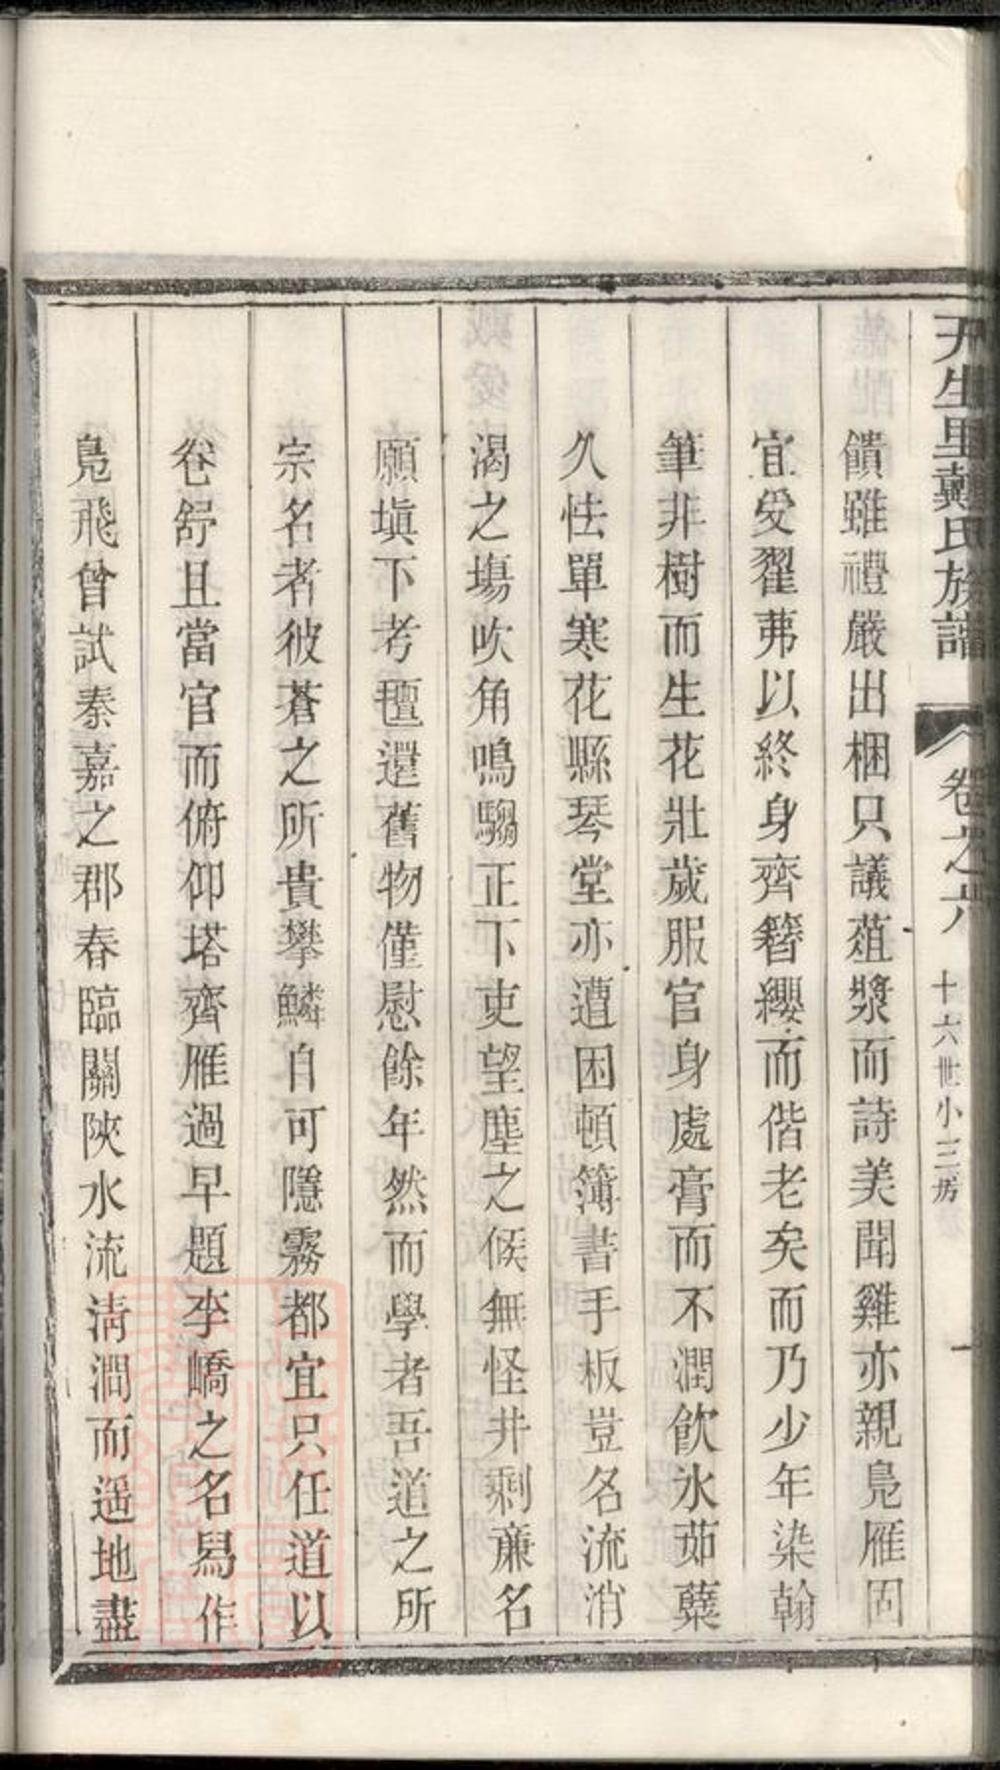 天生里戴氏族譜
卷之六
十六世小三房
一
饋雖禮嚴出梱只議葅漿而詩美聞雞亦親鳧雁固
宜爰翟茀以終身齊簪纓而偕老矣而乃少年染翰
筆非樹而生花壯歲服官身處膏而不潤飲氷茹蘗
久怯單寒花縣琴堂亦遭困頓簿書手板豈名流消
渴之塲吹角鳴騶正下吏望塵之候無怪井剩亷名
願塡下考氊還舊物僅慰餘年然而學者吾道之所
宗名者彼蒼之所貴攀鱗自可隱霧都宜只任道以
卷舒且當官而俯仰塔齊雁過早題李嶠之名舄作
鳧飛曾試秦嘉之郡春臨關陝水流淸澗而遥地盡